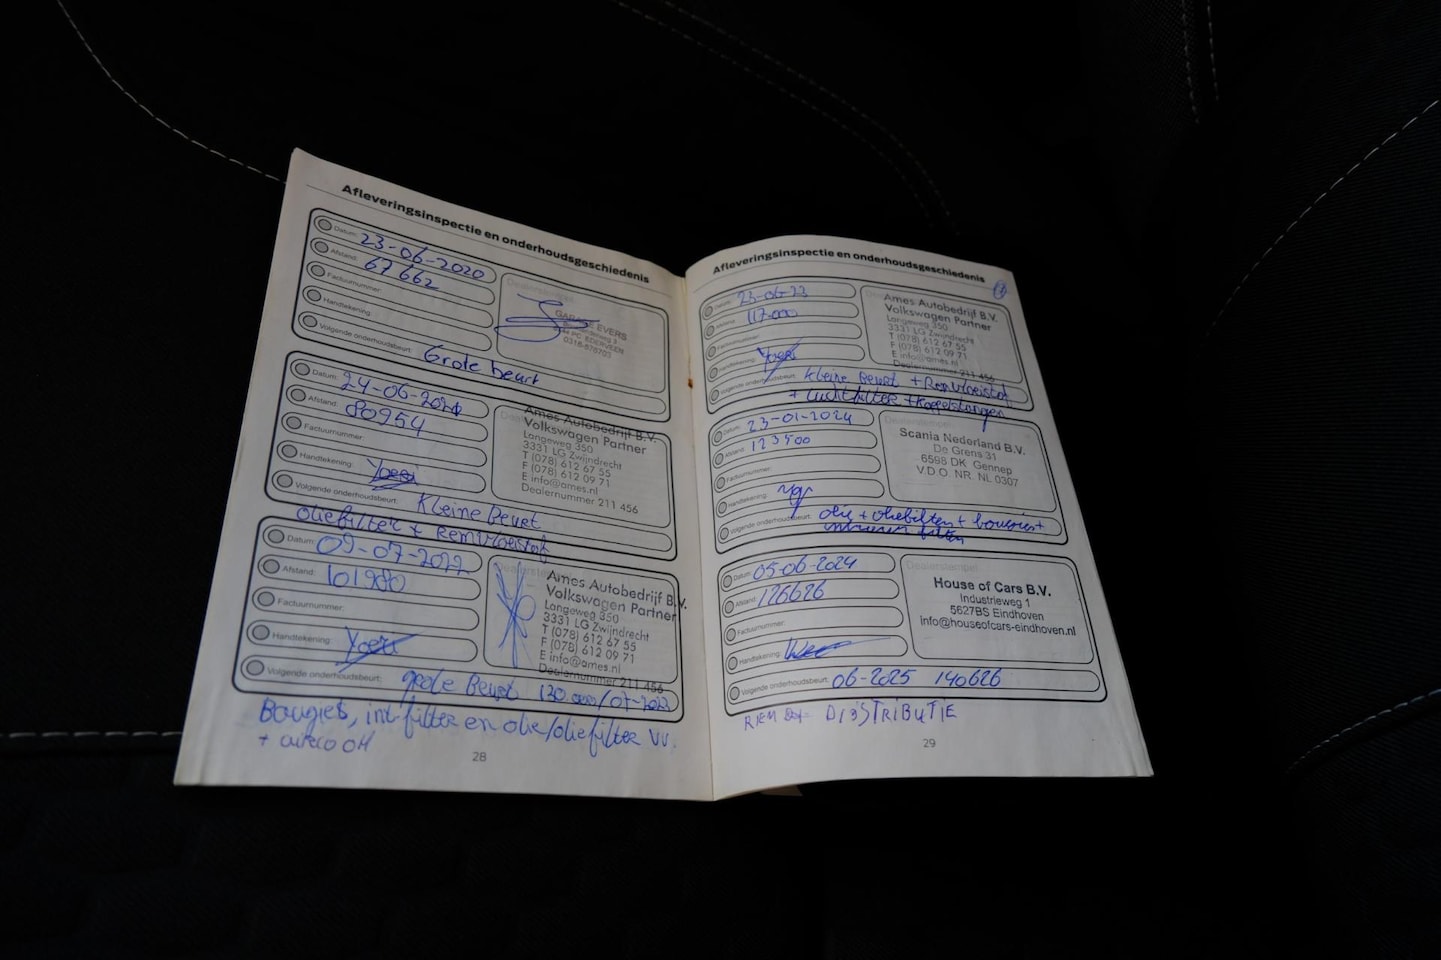 Afleveringsinspectie en onderhoudsgeschiedenis
Datum: 23-06-2020
Afstand: 67662
Factuurnummer:
Handtekening:
Volgende onderhoudsbeurt: Grote beurt
Dealerstempel
GARAGE EVERS
EDERVEEN
Datum: 24-06-2021
Afstand: 80954
Factuurnummer:
Handtekening: Yoeri
Volgende onderhoudsbeurt: Kleine Beurt
oliefilter + Remvloeistof
Ames Autobedrijf B.V.
Volkswagen Partner
Langeweg 350
3331 LG Zwijndrecht
T (078) 612 67 55
F (078) 612 09 71
E info@ames.nl
Dealernummer 211 456
Datum: 09-07-2022
Afstand: 101980
Factuurnummer:
Handtekening: Yoeri
Volgende onderhoudsbeurt: grote Beurt 130.000/07-2023
Bougies, int-filter en olie/oliefilter VV.
+ airco OH
Dealerstempel
Ames Autobedrijf B.V.
Volkswagen Partner
Langeweg 350
3331 LG Zwijndrecht
T (078) 612 67 55
F (078) 612 09 71
E info@ames.nl
Dealernummer 211 456
28
Afleveringsinspectie en onderhoudsgeschiedenis
Datum: 23-06-23
Afstand: 117.000
Factuurnummer:
Handtekening: Yoeri
Volgende onderhoudsbeurt: Kleine Beurt + Remvloeistof
+ Luchtfilter + Koppelstangen
Ames Autobedrijf B.V.
Volkswagen Partner
Langeweg 350
3331 LG Zwijndrecht
T (078) 612 67 55
F (078) 612 09 71
E info@ames.nl
Dealernummer 211 456
Datum: 23-01-2024
Afstand: 123500
Factuurnummer:
Handtekening:
Volgende onderhoudsbeurt: olie + oliefilter + bougies +
interieur filter
Dealerstempel
Scania Nederland B.V.
De Grens 31
6598 DK Gennep
V.D.O. NR. NL 0307
Datum: 05-06-2024
Afstand: 126626
Factuurnummer:
Handtekening:
Volgende onderhoudsbeurt: 06-2025 140626
RIEM DISTRIBUTIE
Dealerstempel
House of Cars B.V.
Industrieweg 1
5627BS Eindhoven
Info@houseofcars-eindhoven.nl
29